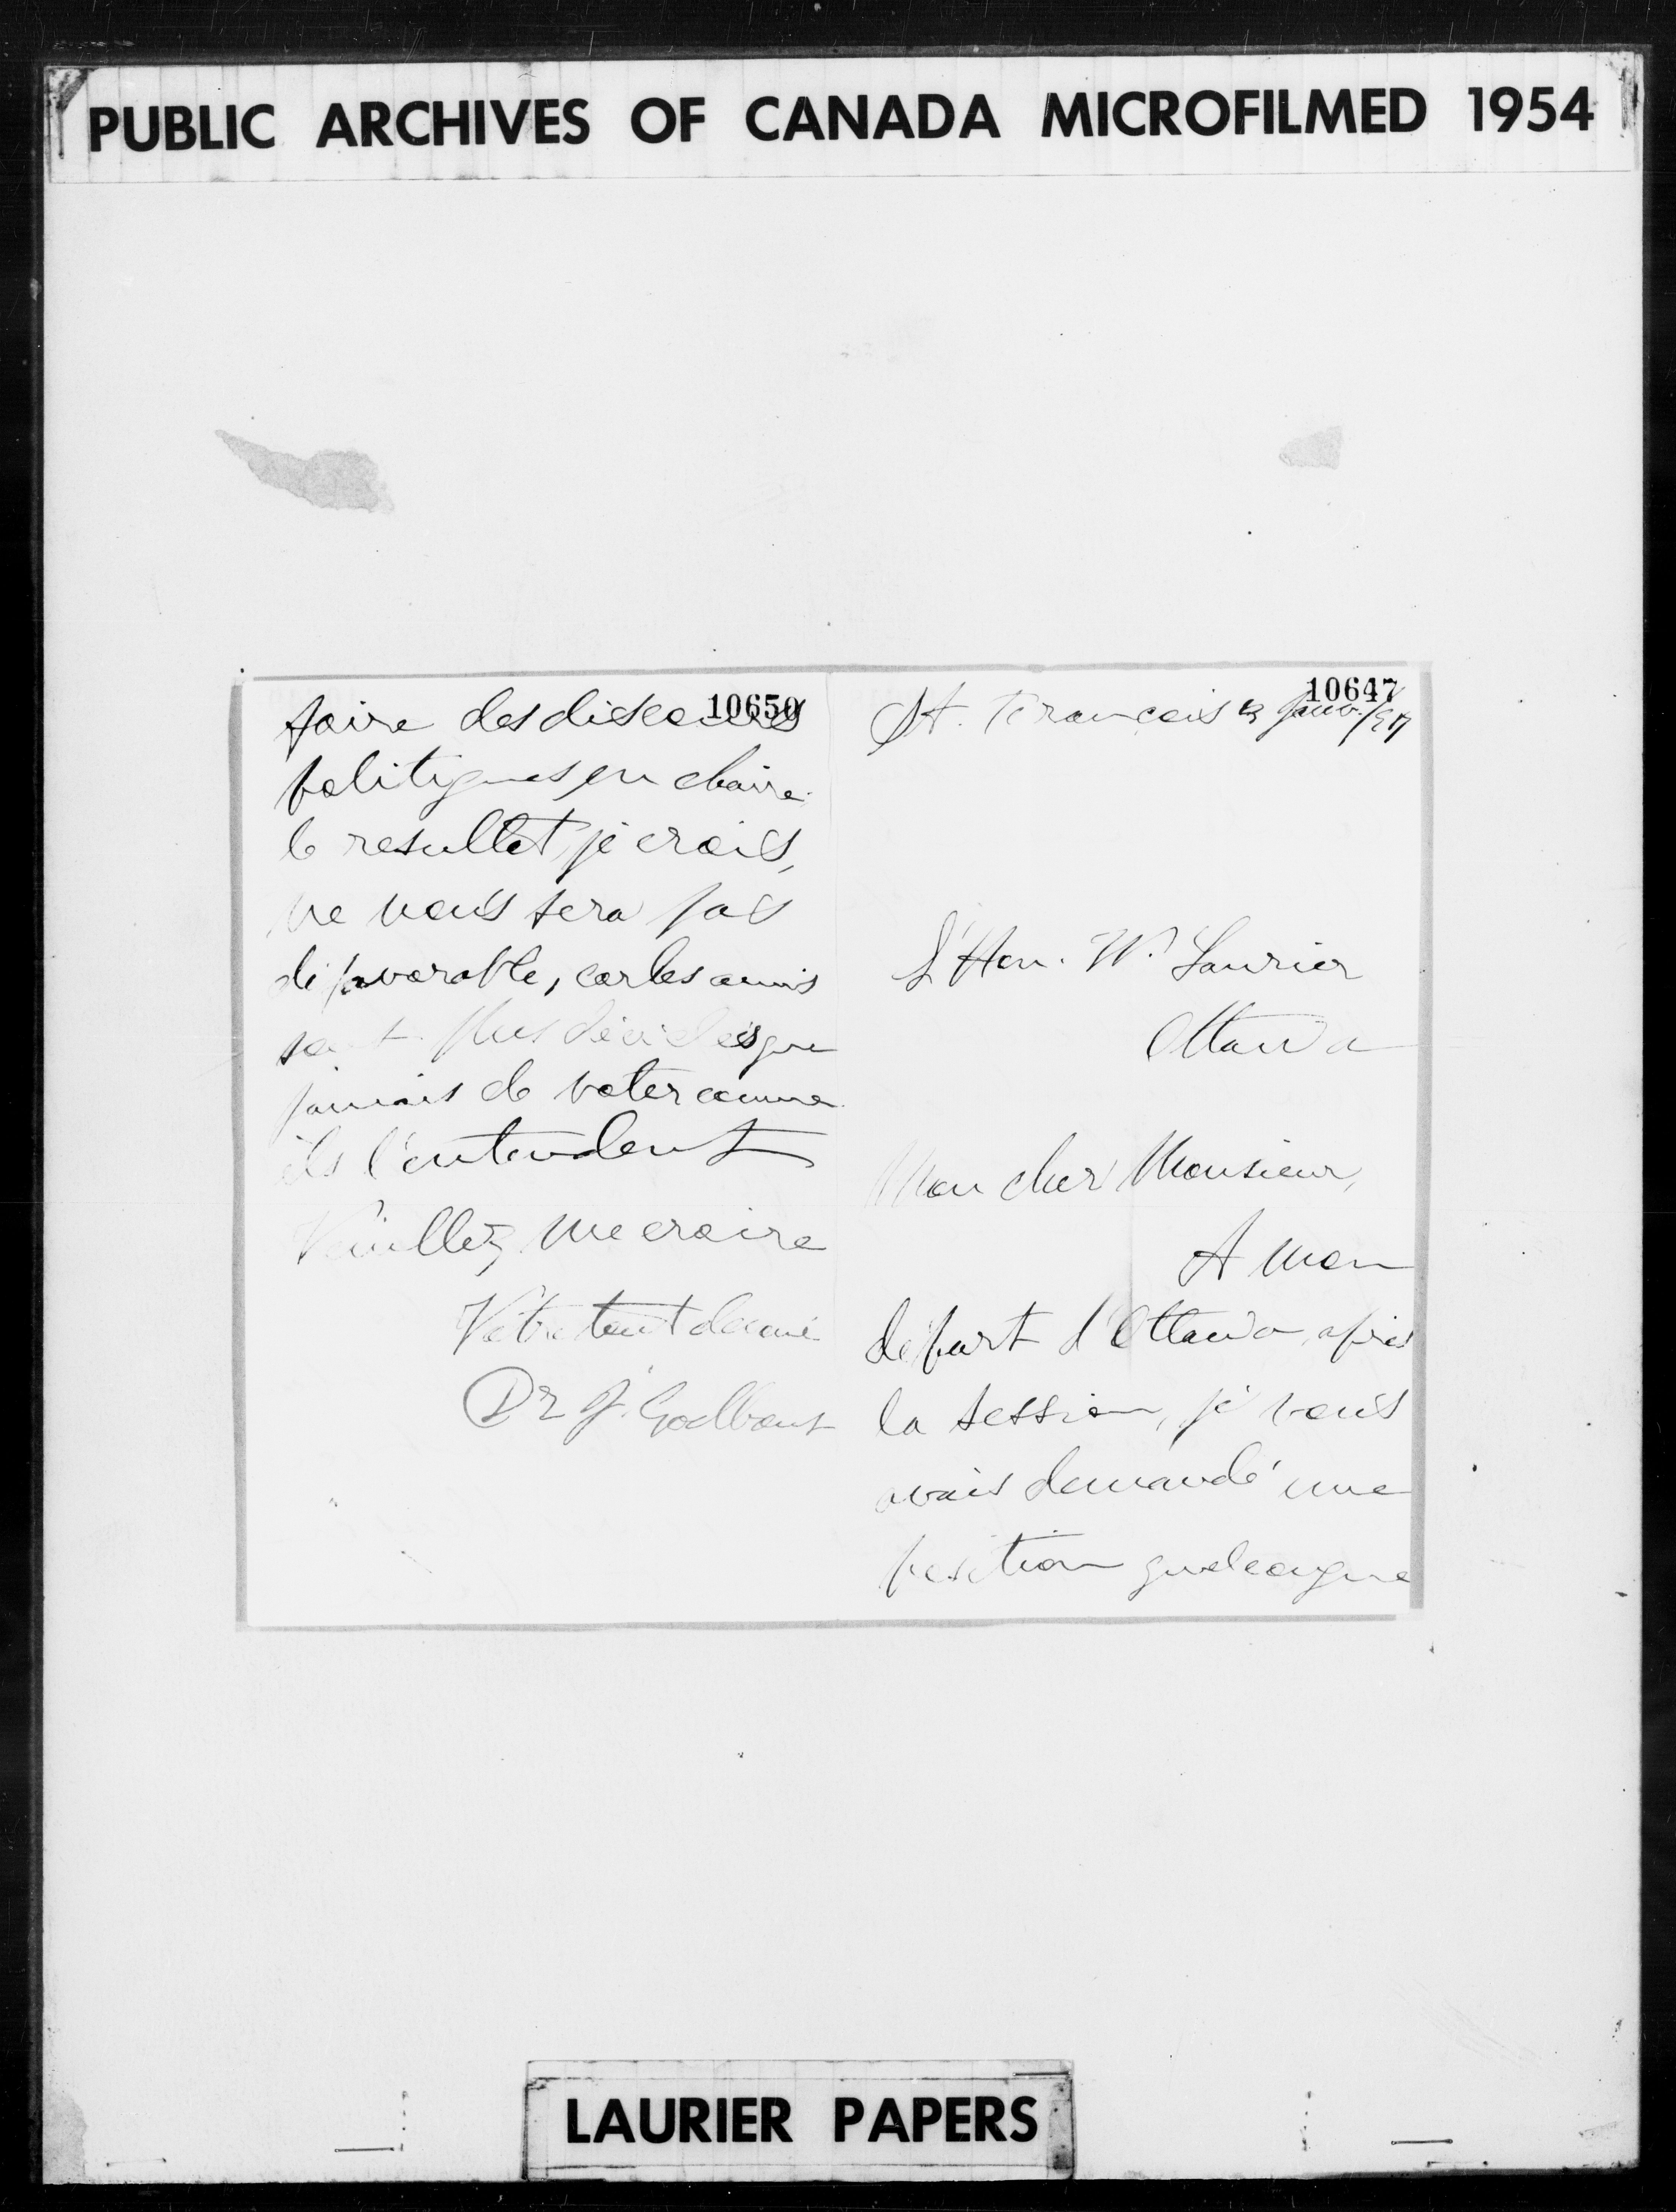 PUBLIC ARCHIVES OF CANADA MICROFILMED 1954
10650
faire des discours
politiques en chaire.
le resultat, je crois,
ne nous sera pas
défavorable, car les amis
sont plus décidés que
jamais de voter comme
ils l'entendent
Veuillez me croire
Votre tout devoué
Dr J. Godbout
10647
St. François Janv./97
L'Hon. W. Laurier
Ottawa
Mon cher Monsieur,
A mon
départ d'Ottawa, après
la session, je vous
avais demandé une
position quelconque
LAURIER PAPERS